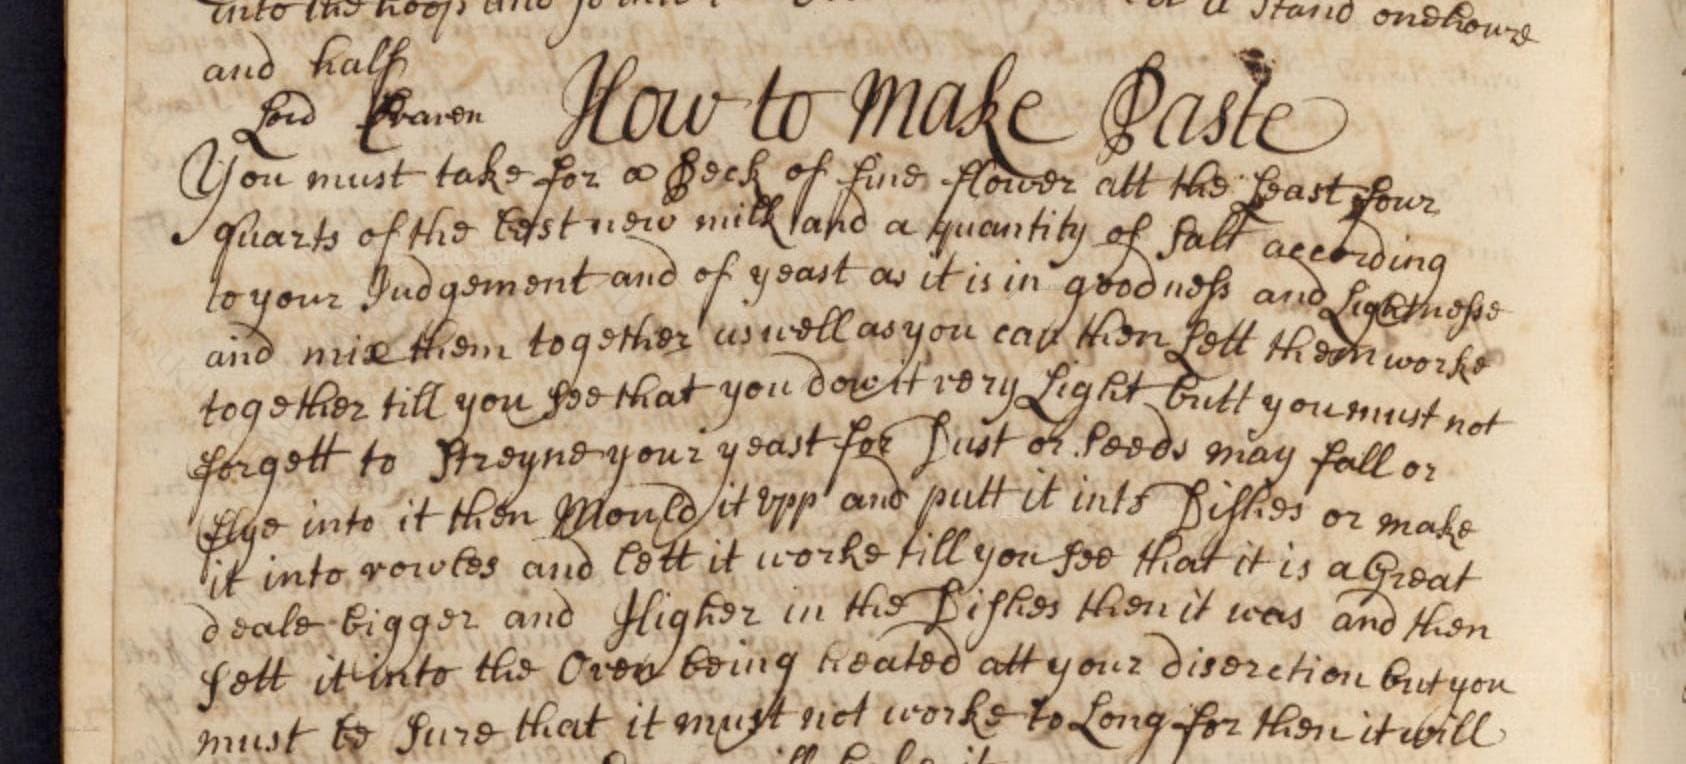 into the hoops and a stand onehoure
and half
Lord Craven How to make Paste
You must take for a Peck of fine flower att the Least four
quarts of the best new milk and a quantity of salt according
to your Judgement and of yeast as it is in goodness and Lightnesse
and mix them together as well as you can then Lett them worke
together till you see that you dow it very Light butt you must not
forgett to streyne your yeast for Dust or seeds may fall or
flye into it then Mould it vpp and putt it into Dishes or make
it into rowles and lett it worke till you see that it is a Great
deale bigger and Higher in the Dishes then it was and then
sett it into the Oven being heated att your discretion but you
must be sure that it must not worke to Long for then it will